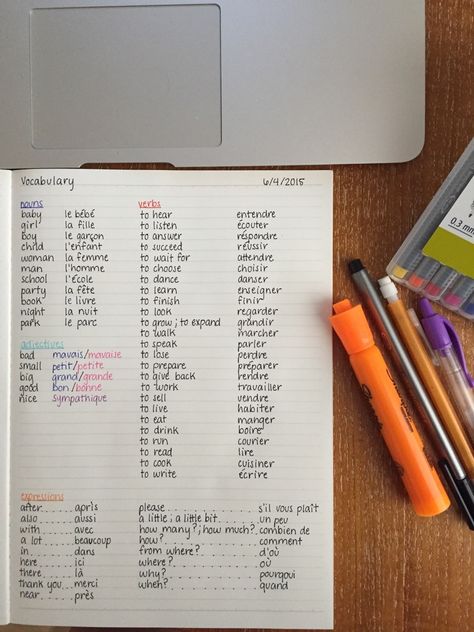 Vocabulary 6/4/2015
nouns
baby le bébé
girl la fille
boy le garçon
child l'enfant
woman la femme
man l'homme
school l'école
party la fête
book le livre
night la nuit
park le parc
adjectives
bad mavais/mavaise
small petit/petite
big grand/grande
good bon/bonne
nice sympathique
verbs
to hear entendre
to listen écouter
to answer réspondre
to succeed réussir
to wait for attendre
to choose choisir
to dance danser
to learn enseigner
to finish finir
to look regarder
to grow ; to expand grandir
to walk marcher
to speak parler
to lose perdre
to prepare préparer
to give back rendre
to work travailler
to sell vendre
to live habiter
to eat manger
to drink boire
to run courier
to read lire
to cook cuisiner
to write écrire
expressions
after......après
also......aussi
with......avec
a lot......beaucoup
in......dans
here......ici
there......là
thank you...merci
near......près
please......s'il vous plaît
a little ; a little bit......un peu
how many? ; how much?...combien de
how?......comment
from where?......d'où
where?......où
why?......pourqoi
wheh?......quand
0.3 mm